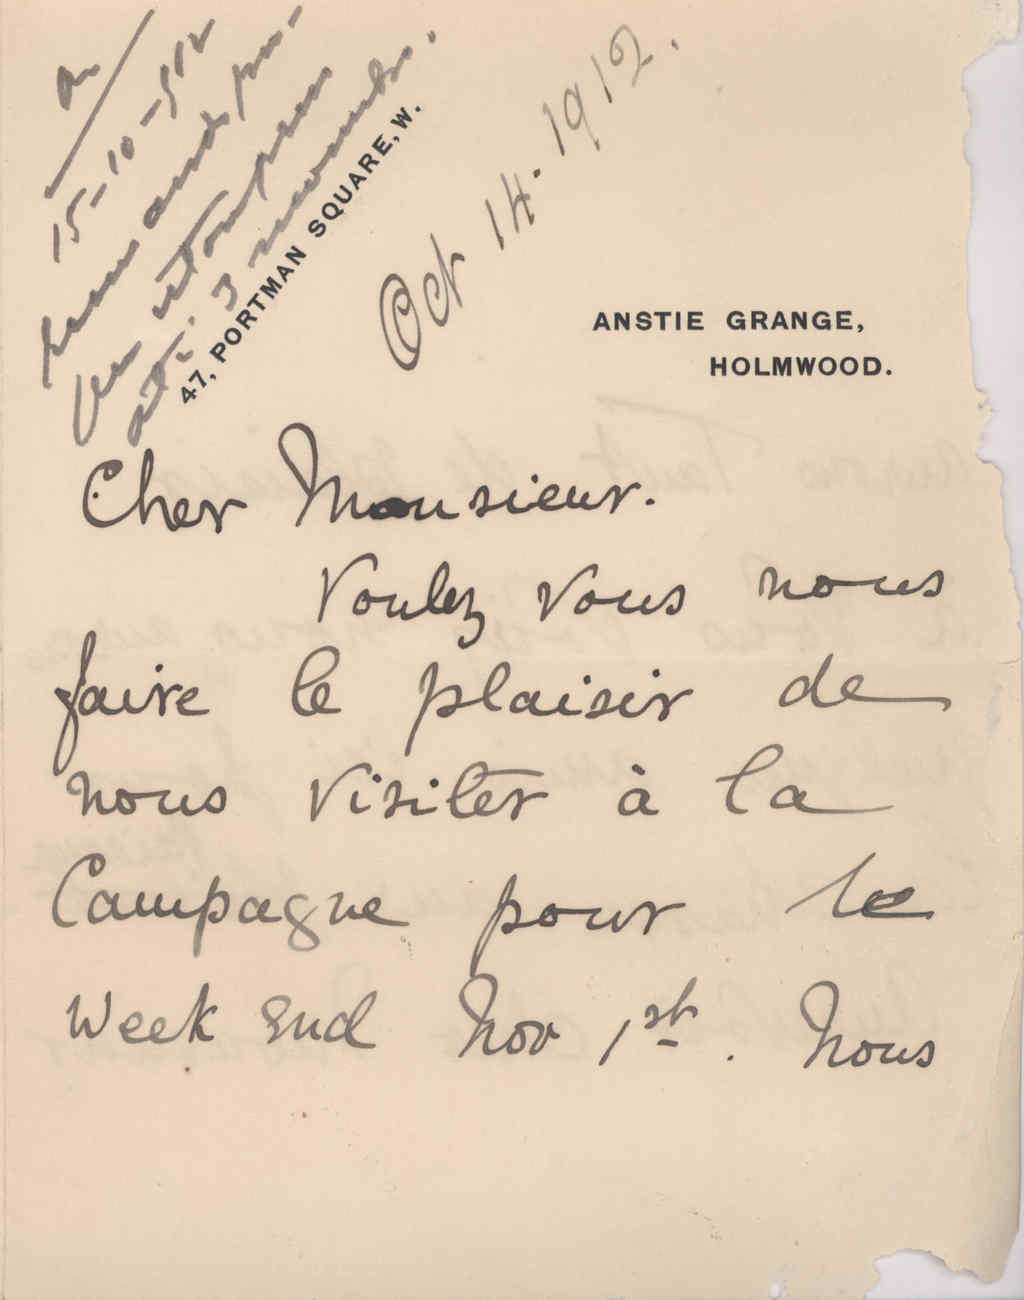 15-10-912
47, PORTMAN SQUARE, W.
Oct 14. 1912.
ANSTIE GRANGE,
HOLMWOOD.
Cher Monsieur.
Voulez vous nous
faire le plaisir de
nous visiter à la
Campagne pour le
Week End Nov 1st. Nous